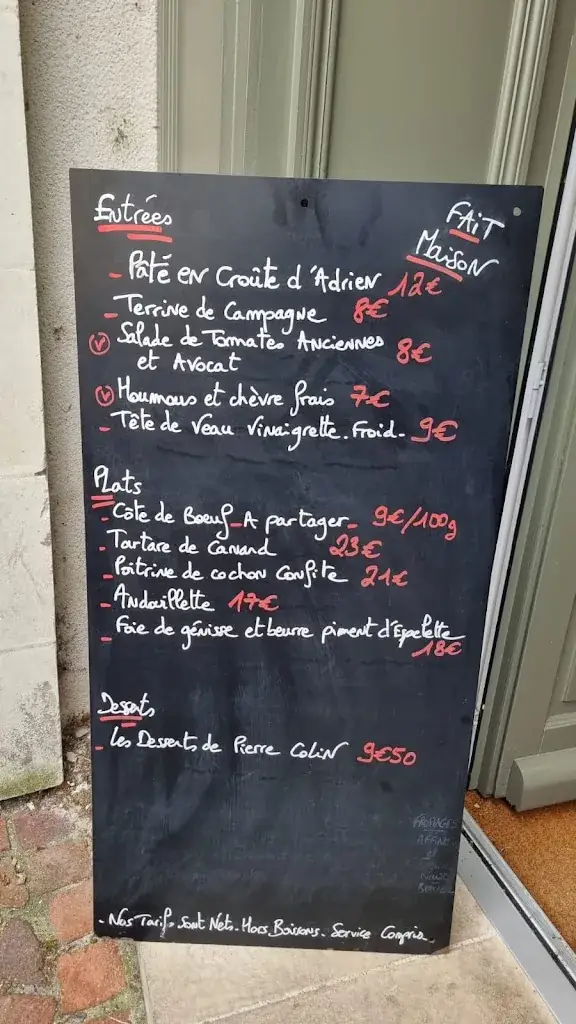 Entrées
FAIT
MAISON
- Pâté en Croûte d'Adrien 12€
- Terrine de Campagne 8€
V Salade de Tomates Anciennes 8€
et Avocat
V Houmous et chèvre frais 7€
- Tête de Veau Vinaigrette. Froid- 9€
Plats
- Côte de Boeuf_A partager_ 9€/100g
- Tartare de Canard 23€
- Poitrine de cochon Confite 21€
- Andouillette 17€
- Foie de génisse et beurre piment d'Espelette
18€
Desserts
- Les Desserts de Pierre Colin 9€50
FROMAGES
- Nos Tarifs Sont Nets. Hors Boissons. Service Compris